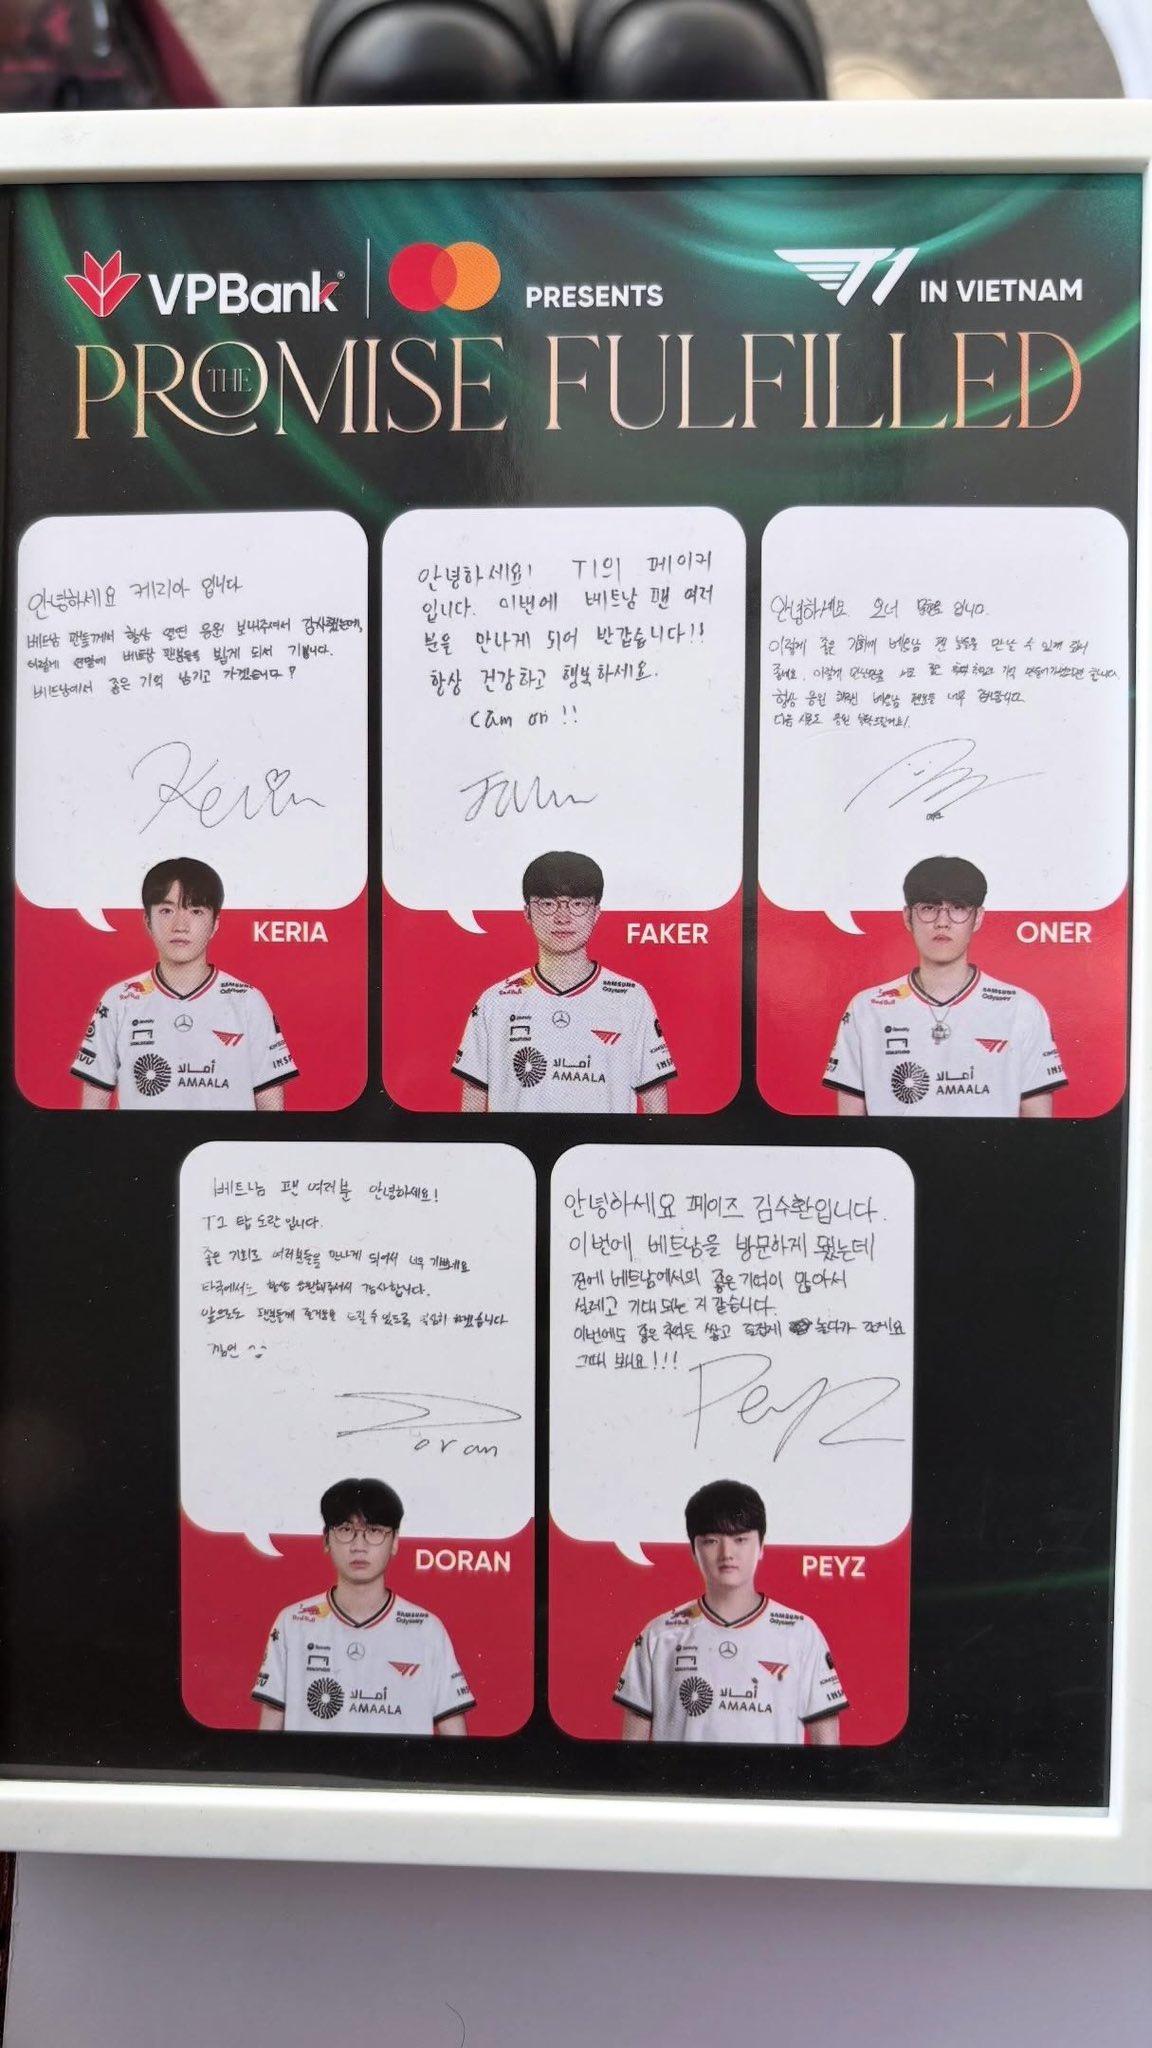 VPBank
PRESENTS
T1 IN VIETNAM
THE PROMISE FULFILLED
안녕하세요 케리아 입니다
베트남 팬들께서 항상 열띤 응원 보내주셔서 감사했는데,
이렇게 연말에 베트남 팬분들을 뵙게 되서 기쁩니다.
베트남에서 좋은 기억 남기고 가겠습니다?
Keria
안녕하세요! T1의 페이커
입니다. 이번에 베트남 팬 여러
분을 만나게 되어 반갑습니다!!
항상 건강하고 행복하세요.
Cảm ơn !!
안녕하세요. 오너 입니다.
이렇게 좋은 기회에 베트남 팬 분들을 만날 수 있게 되서
좋네요. 이렇게 만난만큼 서로 좋은 기억 만들어가면 합니다.
항상 응원 베트남 팬분들 너무 감사합니다.
다음 시즌도 응원 부탁드려요!
KERIA
FAKER
ONER
Red Bull
SAMSUNG
Odyssey
أمالا
AMAALA
베트남 팬 여러분 안녕하세요!
T1 탑 도란입니다.
좋은 기회로 여러분들을 만나게 되어서 너무 기쁘네요
타국에서도 항상 응원해주셔서 감사합니다.
앞으로도 팬분들께 즐거움을 느낄 수 있도록 열심히 하겠습니다
깜언 ^^
Doran
안녕하세요 페이즈 김수환입니다.
이번에 베트남을 방문하게 됐는데
전에 베트남에서의 좋은 기억이 많아서
설레고 기대되는 거 같습니다.
이번에도 좋은 추억도 쌓고 즐겁게 놀다가 갈게요
그때 봬요!!!
Peyz
DORAN
PEYZ
Red Bull
SAMSUNG
Odyssey
أمالا
AMAALA